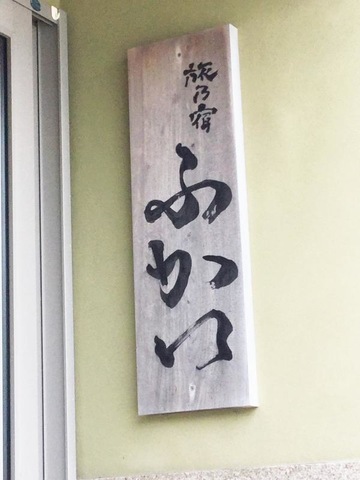 旅乃宿
ふかい